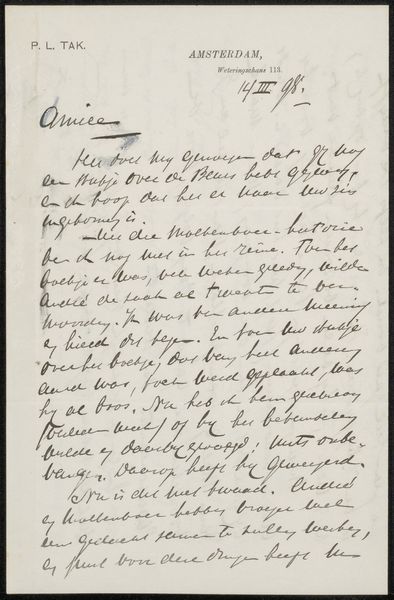 P. L. TAK.
AMSTERDAM,
Weteringschans 113.
14 III 98.
Amice
Het doet my genoegen dat gy nog
een stukje over de Beurs hebt gegeven,
en ik hoop dat het er naar Uw zin
ingekomen is.
Met die Molkenboer-historie
ben ik nog niet in het reine. Toen het
boekje er was, vele weken geleden, wilde
André de zaak al
Ik was van andere meening
en hield dit tegen. En toen Uw stukje
over het boekje, dat van heel anderen
aard was, toch werd geplaatst, was
hy al boos. Nu heb ik hem geschreven
of hy het behandelen
wilde en daarby gevoegd: mits onbe-
vangen. Daarop heeft hy geweigerd.
Nu is dit niet kwaad. André
en Molkenboer hebben vroeger wel
een gedeelte samen te zullen werken,
en juist voor deze dingen heeft